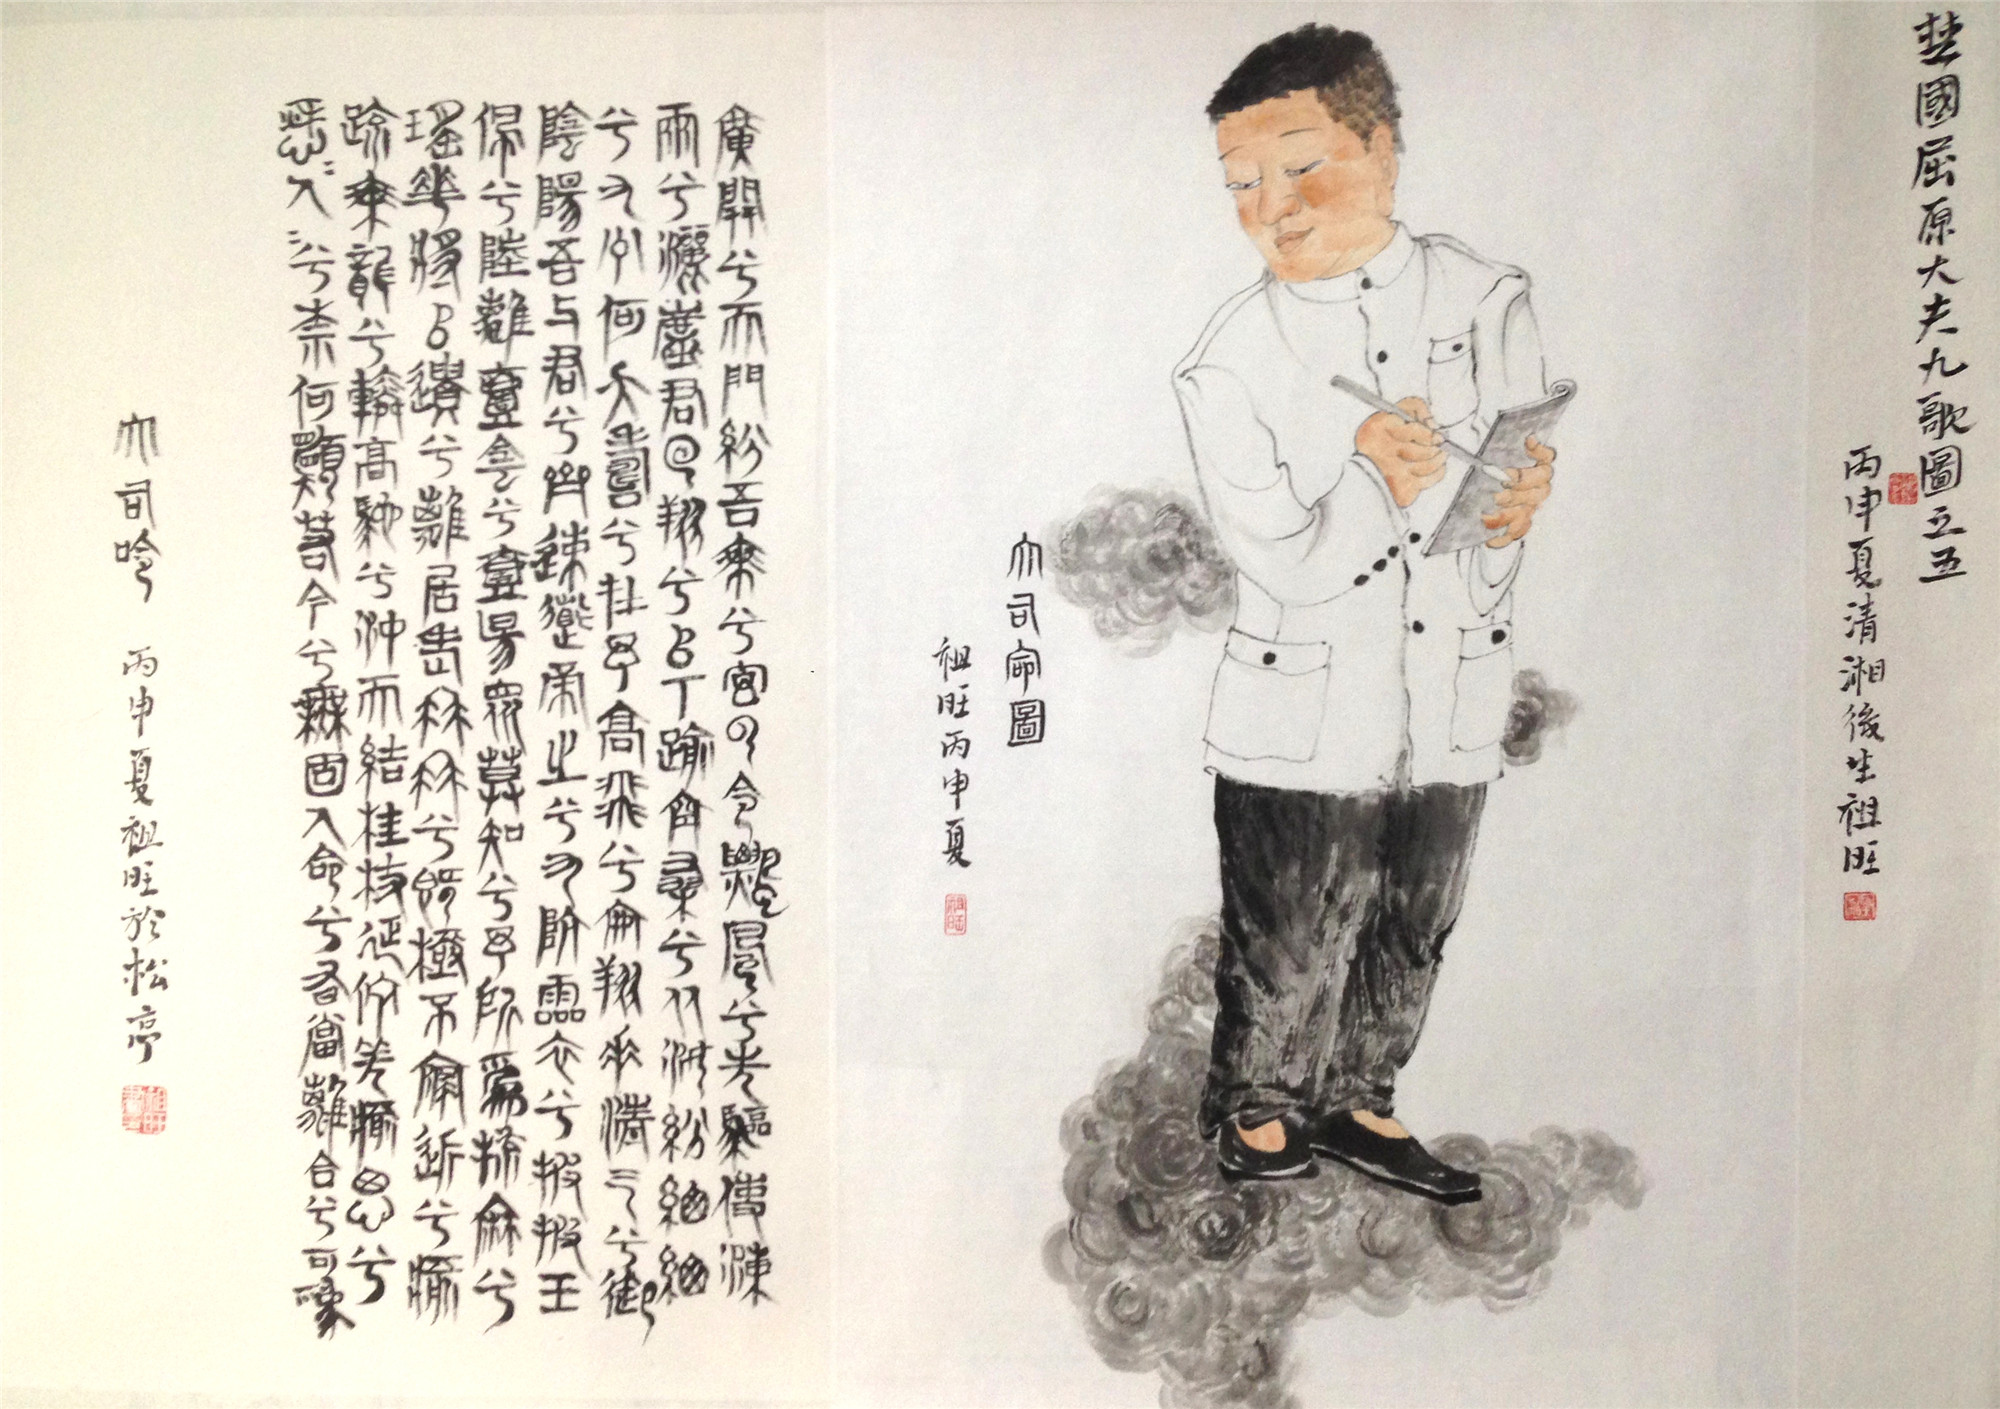 楚國屈原大夫九歌圖之五
丙申夏清湘後生祖旺
大司命圖
祖旺丙申夏
廣開兮天門紛吾乘兮玄云令飄風兮先驅使涷
雨兮灑塵君回翔兮以下踰空桑兮從女紛總總
兮九州何夭壽兮在予高飛兮安翔乘清气兮御
陰陽吾与君兮齊速導帝之兮九阬靈衣兮被被玉
佩兮陸離壹侌兮壹昜眾莫知兮予所爲疏麻兮
瑤華將以遺兮離居老冉冉兮既極不寖近兮愈
疏乘龍兮轔高馳兮沖天結桂枝延佇羌愈思兮
愁〻人〻兮柰何願若今兮無固人命兮有當離合兮可爲
大司吟 丙申夏祖旺於松亭